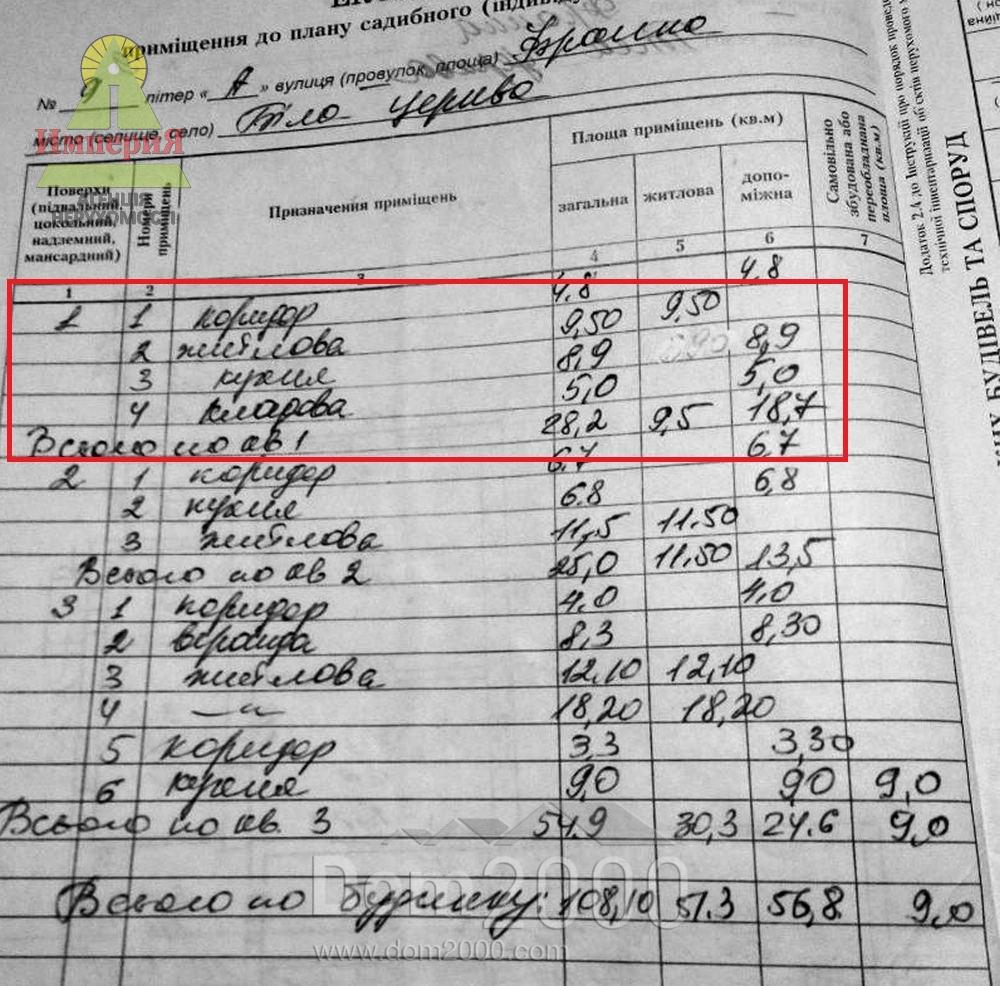 приміщення до плану садибного (індивіду
№ 9 літер « А » вулиця (провулок, площа) Франка
місто (селище, село) Біла Церква
Империя
АГЕНЦІЯ
НЕРУХОМОСТІ
Поверхи (підвальний, цокольний, надземний, мансардний)
Номери приміщень
Призначення приміщень
Площа приміщень (кв.м)
загальна житлова допо-міжна
Самовільно збудована або переобладнана площа (кв.м)
1 2 3 4 5 6 7
1 1 коридор 4.8 4.8
2 житлова 9,50 9,50
3 кухня 8,9 8,9
4 кладова 5,0 5,0
Всього по кв 1 28,2 9,5 18,7
2 1 коридор 6.7 6,7
2 кухня 6.8 6,8
3 житлова 11,5 11.50
Всього по кв 2 25,0 11.50 13,5
3 1 коридор 4.0 4.0
2 веранда 8,3 8,30
3 житлова 12,10 12,10
4 —"— 18,20 18,20
5 коридор 3,3 3,30
6 кухня 9,0 9,0 9,0
Всього по кв. 3 54.9 30,3 24.6 9,0
Всього по будинку: 108,10 51.3 56,8 9,0
Dom2000
www.dom2000.com
Додаток 2.4 до Інструкції про порядок проведе
технічної інвентаризації об'єктів нерухомого
БУДІВЕЛЬ ТА СПОРУД